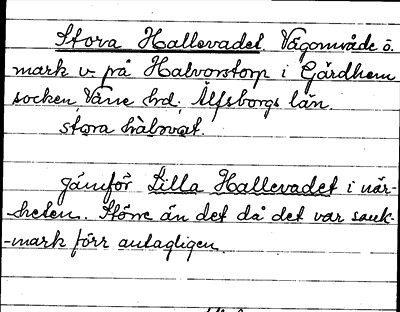 Stora Hallevadet. Vägområde o.
mark v. på Halvorstorp i Gärdhem
socken, Väne hrd. Älfsborgs län.
stora hàlǝvat.
jämför Lilla Hallevadet i när-
heten. Större än det då det var sank-
-mark förr antagligen.